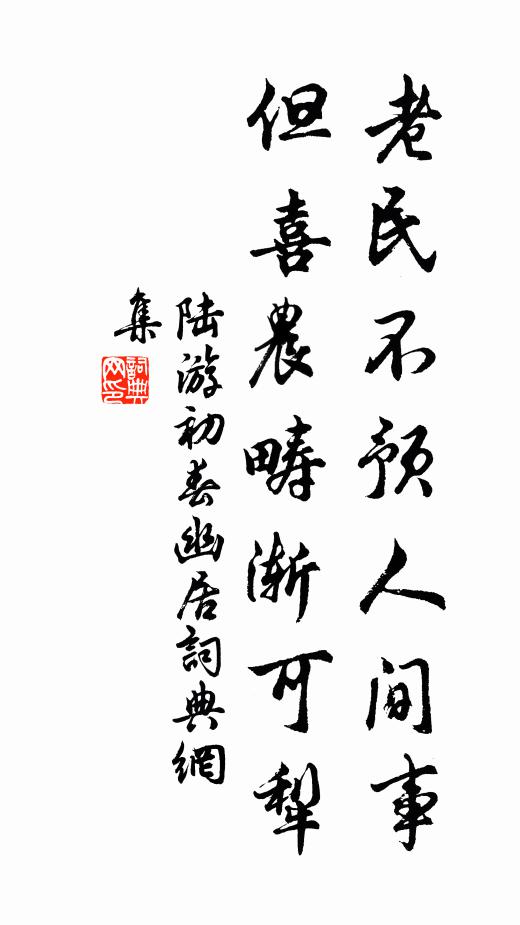 老民不预人间事
但喜農畴渐可犁
陆游初春幽居詞典網
集
詞典
网印